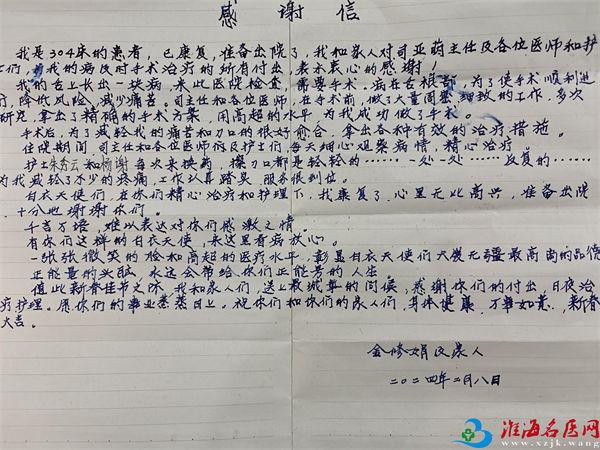 感谢信
我是304床的患者,已康复,准备出院了,我和家人对司亚萌主任及各位医师和护
士们,为我的病及时手术治疗的所有付出,表示衷心的感谢!
我的舌上长出一块病,来此医院检查 需要手术,病在舌根部,为了使手术顺利进
行,降低风险,减少痛苦。司主任和各位医师,在手术前,做了大量周密细致的工作,多次
研究,拿出了精确的手术方案,用高超的水平,为我成功做了手术。
手术后,为了减轻我的痛苦和刀口的很好愈合,拿出各种有效的治疗措施。
住院期间,司主任和各位医师及护士们,每天细心观察病情,精心治疗。
护士 云和杨谢每次来换药,擦刀口都是轻轻的……一处一处……反复的……
为我减轻了不少的疼痛,工作认真踏实,服务很到位。
白衣天使们,在你们精心治疗和护理下,我康复了,心里无比高兴,准备出院
十分地谢谢你们。
千言万语,难以表达对你们感激之情。
有你们这样的白衣天使,来这里看病放心。
一张张微笑的脸和高超的医疗水平,彰显白衣天使们大爱无疆最高尚的品德
正能量的 ,永远会带给你们正能量的人生。
值此新春佳节之际,我和家人们,送上最诚挚的问候,感谢你们的付出,日夜治
疗护理。愿你们的事业蒸蒸日上。祝你们和你们的家人们,身体健康,万事如意,新春
大吉。
金修娟及家人
二〇二四年二月八日
淮海名医网
www.xzjk.wang